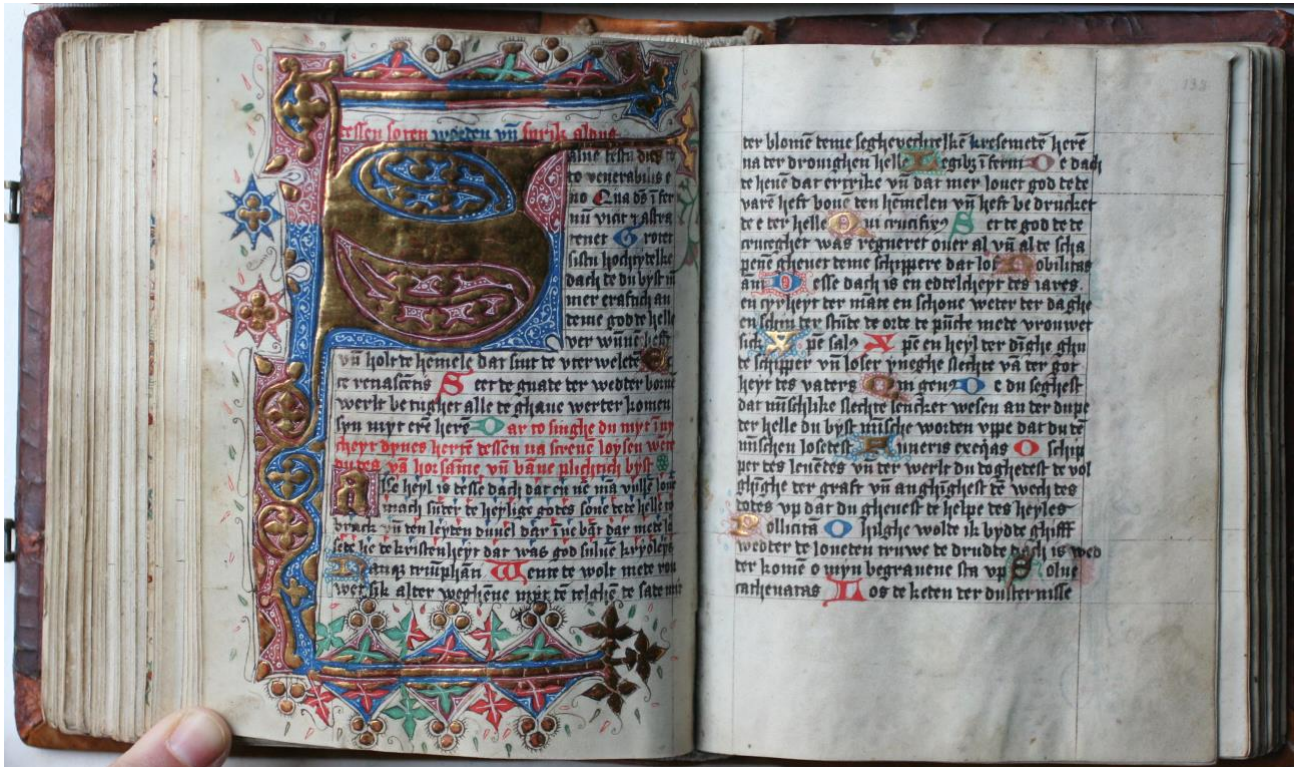 tessen soten worten vn̄ syrik
alue festa dies to
to venerabilis e
no Qua ds ī fer
nū vicit ⁊ astra
tenet Groter
sistu hochtytelke
dach te du byst in
mer erafticħ an
teme god te helle
ver wūne heft
vn̄ holt te hemele dat sint te vter welete
te renascētis Seet te gnate ter wedter borne
werlt be tughet alle te ghaue werter komen
syn myt erē herē Dar to singhe du myt īny
cheyt dynes hertē tessen na screuē loysen wēte
du tes vā horsāme vn̄ bāne plichtich byst
Alse heyl is tesse dach dar en nē mā vullē loue
mach sūter te heylige gotes sone te te helle to
brack vn̄ ten leyten duuel dar īne bāt dar mete lo
sete he te kristenheyt dar was god sulue kryoleys
Nanq triūphan Wente te wolt mete rou
wet sik alter weghene myt tē telghē te sate mit
133
ter blomē teme seghevechtelkē kresemetē herē
na ter drouighen helle Legibȝ īferni De dach
te henē dat ertrike vn̄ dat mer louet god te te
varē heft boue ten hēmelen vn̄ heft be drucket
te e ter helle Qui crucifixꝰ Set te god te te
cruceghet was regneret ouer al vn̄ al te scha
penē gheuet teme schippere dat lof Nobilitas
āni Desse dach is en edtelcheyt tes iares
en cyrheyt ter māte en schone weter ter daghe
en schin ter stūte te orte te pūcte mete vrouwet
sick Xpē salꝰ Xpē en heyl ter dīghe ghu
te schipper vn̄ loser yneghe slechte vā ter got
heyt tes vaters Qui genꝰ De du seghest
dat mīschlike slechte sencket wesen an ter dupe
ter helle du byst mīsche worten vppe dat du tē
mīschen losetest Funeris exeqas O schip
per tes leuētes vn̄ ter werlt du toghetest te vol
ghīghe ter graft vn̄ an ghīghest tē wech tes
totes vp dat du gheuest te helpe tes heyles
Pollicitā O hilghe wolt ik bydte ghiff
wedter te loueten truwe te drudte dach is wed
ter komē o myn begrauene sta vp Solue
cathenatas Los te keten ter dusternisse